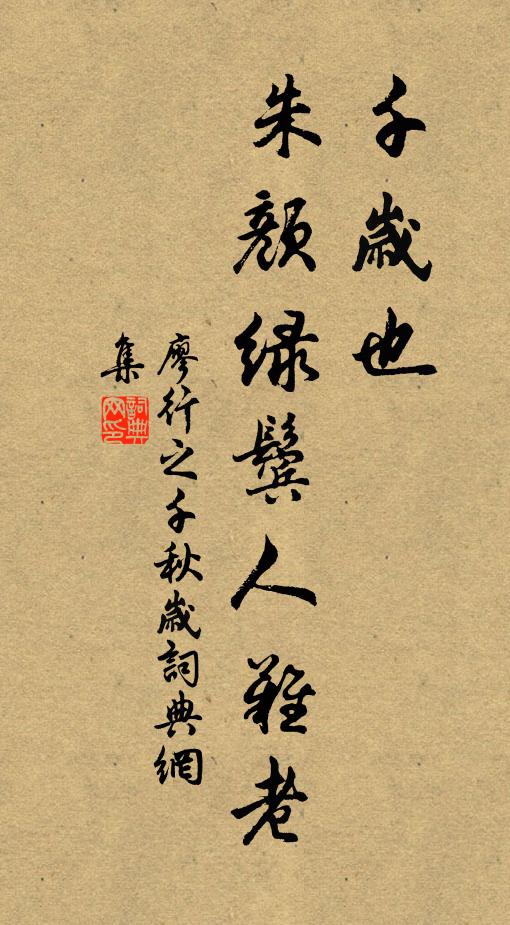 千歲也
朱顏綠鬢人難老
廖行之千秋歲詞典網
集
詞典網印